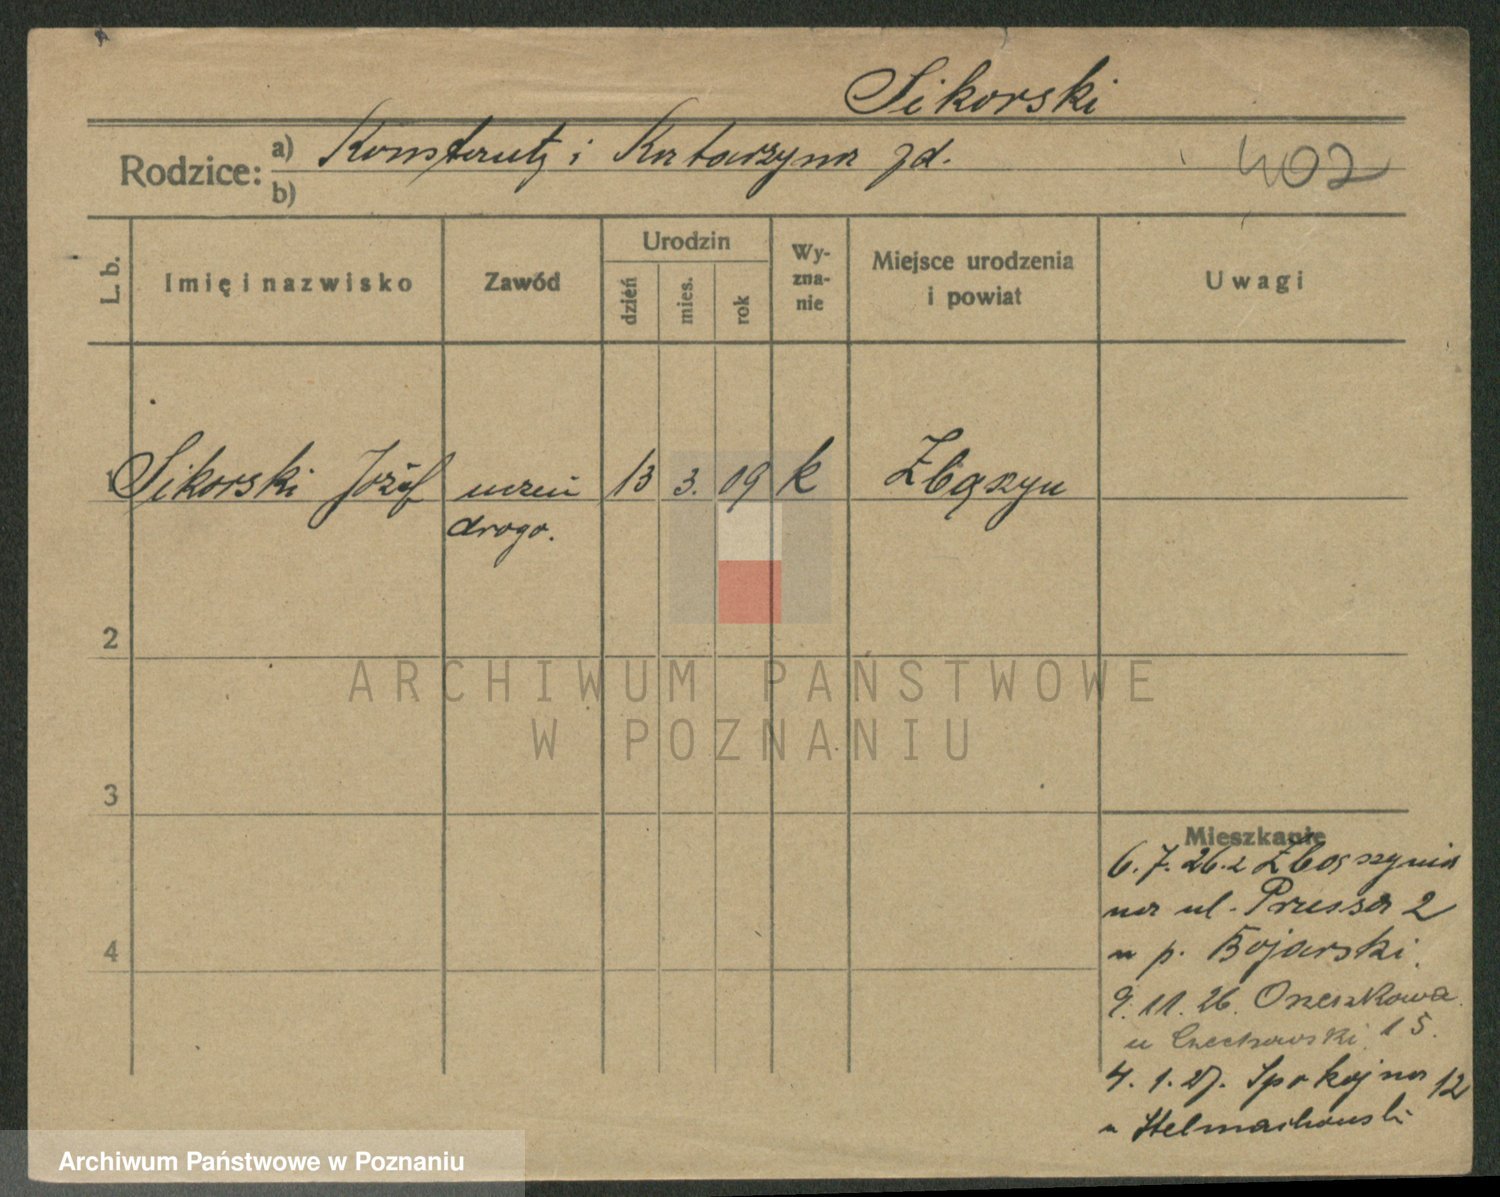 Sikorski
Rodzice: a) Konstanty i Katarzyna zd.
b)
402
L. b.
Imię i nazwisko
Zawód
Urodzin
dzień
mies.
rok
Wy-
zna-
nie
Miejsce urodzenia
i powiat
Uwagi
1 Sikorski Józef uczeń 13 3. 09 k Zbąszyn
drogo.
2
3
4
ARCHIWUM PAŃSTWOWE
W POZNANIU
Mieszkanie
6.7.26. z Zbąszynia
na ul. Prusa 2
u p. Bojarski.
9.11.26. Orzeszkowa
u 15.
4.1.27. Spokojna 12
u
Archiwum Państwowe w Poznaniu